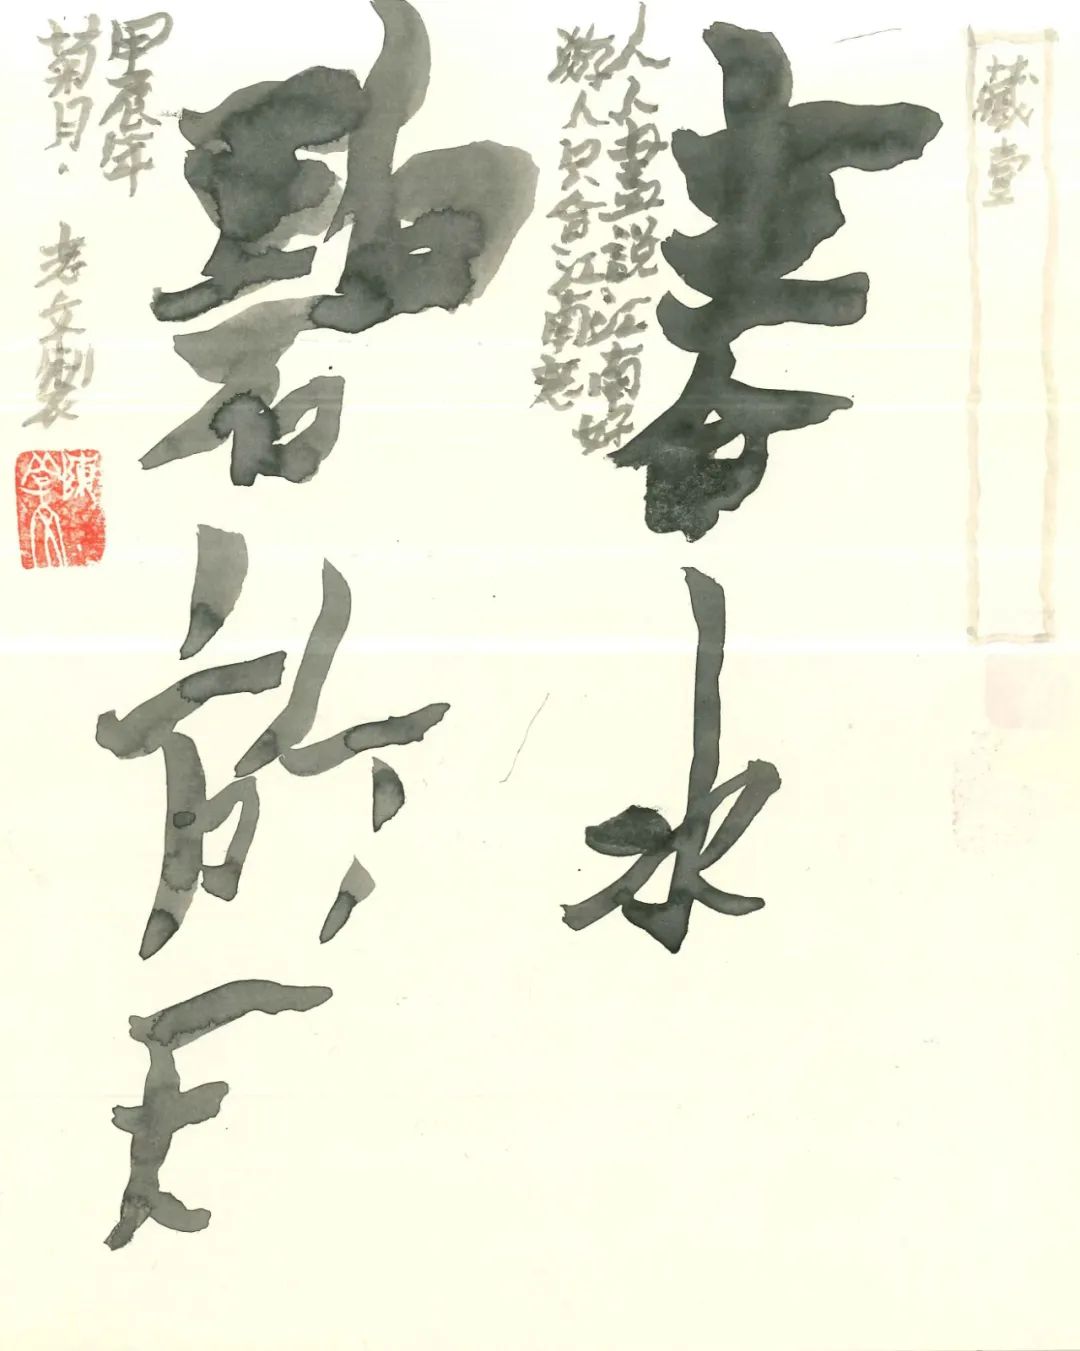 藏壹
春水
人人盡說江南好
遊人只合江南老
碧於天
甲辰年
菊月·老文製
陳學文